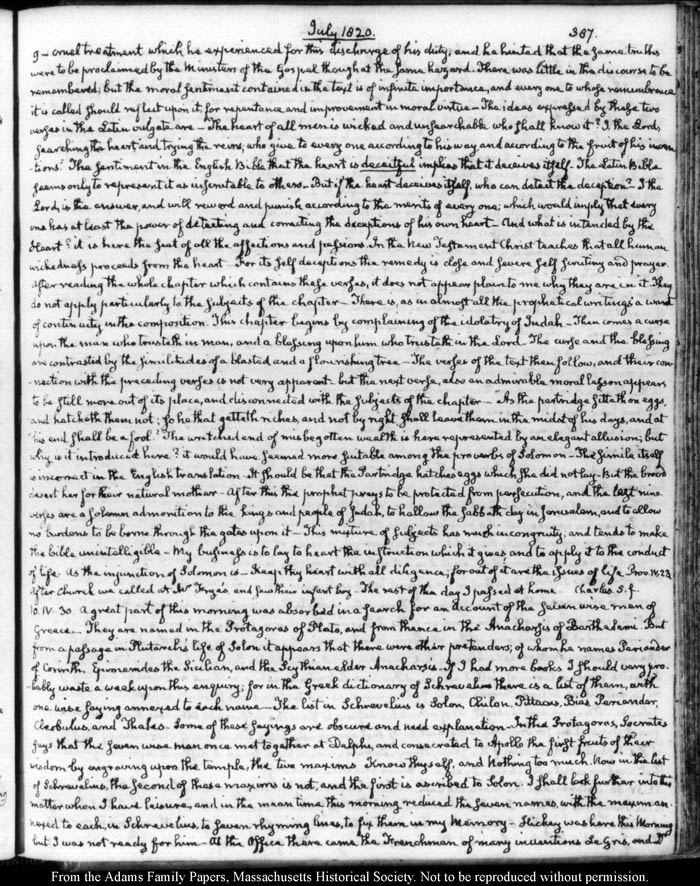 July 1820. 387.
9 - cruel treatment which he experienced for this discharge of his duty, and he hinted that the same truths
were to be proclaimed by the Ministers of the Gospel though at the same hazard. There was little in the discourse to be
remembered; but the moral sentiment contained in the text is of infinite importance, and every one to whose remembrance
it is called should reflect upon it for repentance and improvement in moral virtue - The ideas expressed by these two
verses in the Latin vulgate are - The heart of all men is wicked and unsearchable who shall know it? I, the Lord,
searching the heart and trying the reins, who give to every one according to his way and according to the fruit of his inven
tions. The sentiment in the English Bible that the heart is deceitful implies that it deceives itself - The Latin Bible
seems only to represent it as inscrutable to others - But if the heart deceives itself, who can detect the deception? I the
Lord, is the answer, and will reward and punish according to the merits of every one; which would imply that every
one has at least the power of detecting and correcting the deceptions of his own heart - And what is intended by the
Heart? it is here the seat of all the affections and passions. In the New Testament Christ teaches that all human
wickedness proceeds from the heart - For its self deceptions the remedy is close and severe self scrutiny and prayer.
After reading the whole chapter which contains these verses, it does not appear plain to me why they are in it. They
do not apply particularly to the subjects of the chapter - There is, as in almost all the prophetical writings a want
of continuity in the composition. This chapter begins by complaining of the idolatry of Judah - Then comes a curse
upon the man who trusteth in man, and a blessing upon him who trusteth in the Lord - The curse and the blessing
are contrasted by the similitudes of a blasted and a flourishing tree - The verses of the text then follow, and their con
-nection with the preceding verses is not very apparent - but the next verse, also an admirable moral lesson appears
to be still more out of its place, and disconnected with the subjects of the chapter - As the partridge sitteth on eggs,
and hatcheth them not; so he that getteth riches, and not by right, shall leave them in the midst of his days, and at
his end shall be a fool. The wretched end of misbegotten wealth is here represented by an elegant allusion; but
why is it introduced here? it would have seemed more suitable among the proverbs of Solomon - The simile itself
is incorrect in the English translation - It should be that the Partridge hatches eggs which she did not lay - But the brood
desert her for their natural mother - After this the prophet prays to be protected from persecution, and the last nine
verses are a solemn admonition to the kings and people of Judah, to hallow the Sabbath day in Jerusalem, and to allow
no burdens to be borne through the gates upon it - This mixture of subjects has much incongruity; and tends to make
the bible unintelligible - My business is to lay to heart the instruction which it gives and to apply it to the conduct
of life. As the injunction of Solomon is - Keep thy heart with all diligence; for out of it are the issues of life. Prov.
After Church we called at Mr Frye's and saw their infant boy - The rest of the day I passed at home. Charles. S. J.
10. IV. 30. A great part of this morning was absorbed in a search for an account of the seven wise men of
Greece - They are named in the Protagoras of Plato, and from thence in the Anacharsis of Barthelemi. But
from a passage in Plutarch's life of Solon it appears that there were other pretenders; of whom he names Periander
of Corinth, Epimenides the Sicilian, and the Scythian elder Anacharsis - If I had more books I should very pro
bably waste a week upon this enquiry; for in the Greek dictionary of Schrevelius there is a list of them, with
one wise saying annexed to each name - The list in Schrevelius is Solon, Chilon, Pittacus, Bias Periander,
Cleobulus, and Thales. Some of these sayings are obscure and need explanation - In the Protagoras, Socrates
says that the seven wise men once met together at Delphi, and consecrated to Apollo the first fruits of their
wisdom by engraving upon the temple, the two maxims Know thyself, and Nothing too much. Now in the list
of Schrevelius, the second of these maxims is not, and the first is ascribed to Solon. I shall look further into this
matter when I have leisure, and in the mean time this morning reduced the seven names, with the maxim an
nexed to each, in Schrevelius, to seven rhyming lines, to fix them in my Memory - Hickey was here this Morning
but I was not ready for him - At the Office there came the Frenchman of many inventions Le Gris, and Dr
From the Adams Family Papers, Massachusetts Historical Society. Not to be reproduced without permission.